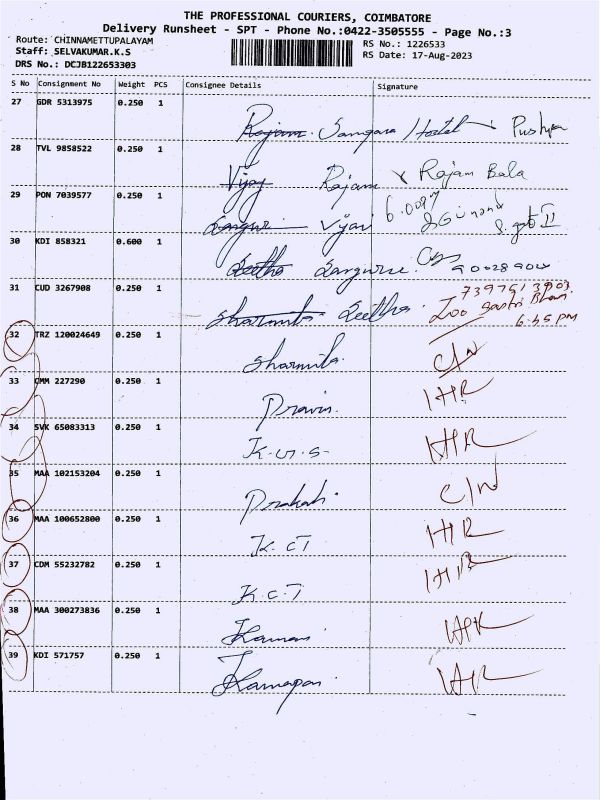 THE PROFESSIONAL COURIERS, COIMBATORE
Delivery Runsheet - SPT - Phone No.:0422-3505555 - Page No.:3
Route: CHINNAMETTUPALAYAM
RS No.: 1226533
Staff: SELVAKUMAR.K.S
RS Date: 17-Aug-2023
DRS No.: DCJB122653303
S No Consignment No Weight PCS Consignee Details Signature
27 GDR 5313975 0.250 1
Rajam Hostel
28 TVL 9858522 0.250 1
Vijay Rajam Rajam Bala
29 PON 7039577 0.250 1
Vijai
30 KDI 858321 0.600 1
Seetha
31 CUD 3267908 0.250 1
Sharmila Seetha
6.45 PM
32 TRZ 120024649 0.250 1
Sharmila. C/N
33 CMM 227290 0.250 1
Pravin. IHR
34 SVK 65083313 0.250 1
IHR
35 MAA 102153204 0.250 1
Prakash. C/N
36 MAA 100652800 0.250 1
K. CT IHR
37 CDM 55232782 0.250 1
K.C.T IHR
38 MAA 300273836 0.250 1
IHR
39 KDI 571757 0.250 1
IHR